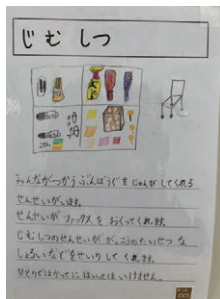 じむしつ
みんながつかうぶんぼうぐをじゅんびしてくれる
せんせいがいます。
せんせいが ファックスを おくってくれます。
じむしつのせんせいが がっこうのたいせつ な
しょるいなどをせいりしてくれます。
かってに はいっては いけません。